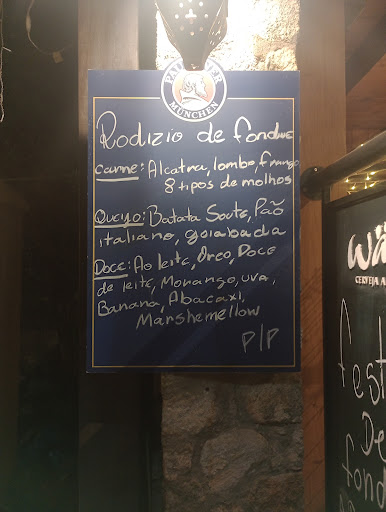 PAULANER
MÜNCHEN
Rodizio de fondue
Carne: Alcatra, lombo, frango
8 tipos de molhos
Queijo: Batata Soute, Pão
italiano, goiabada
Doce: Ao leite, Oreo, Doce
de leite, Morango, uva,
Banana, Abacaxi,
Marshemellow
P/P
CERVEJA A
fest
De
fond